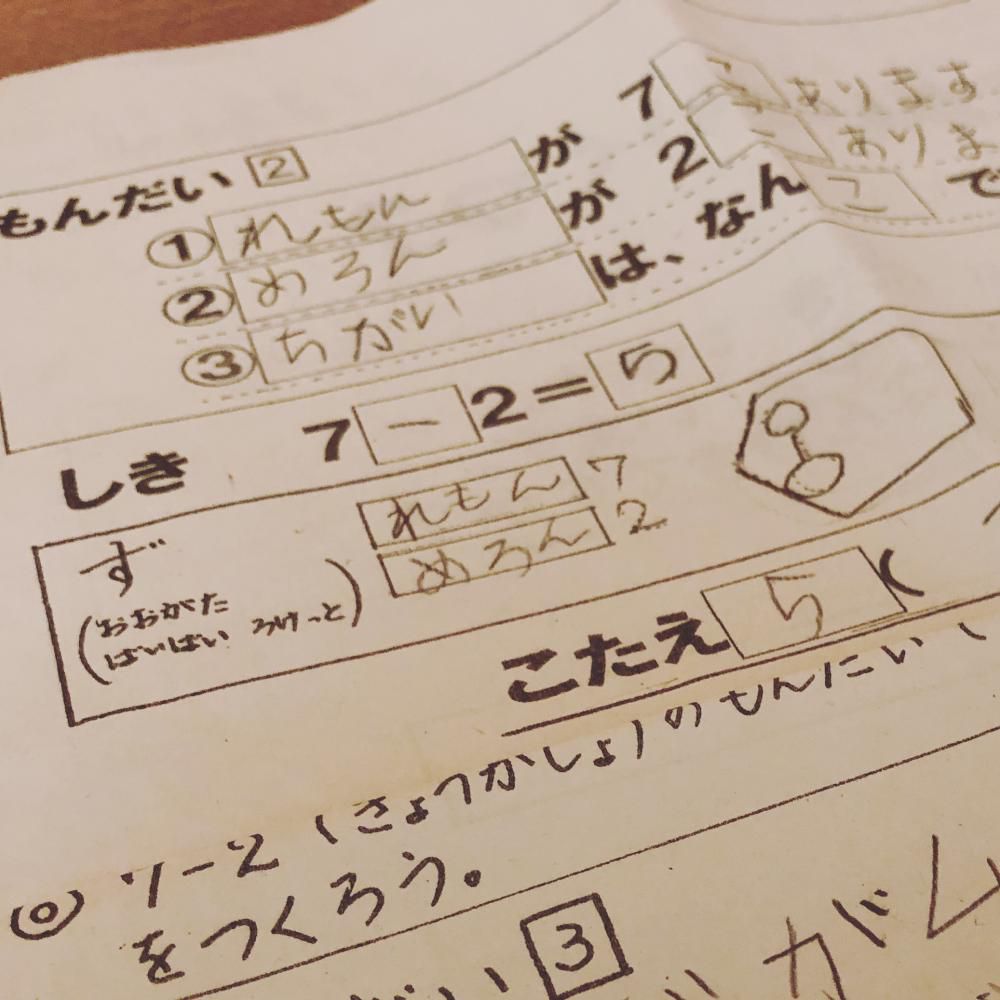 もんだい 2
① れもん が 7 こ あります
② めろん が 2 こ ありま
③ ちがい は、なん こ で
しき 7 ー 2 = 5
ず れもん 7
(おおがた めろん 2
ぱいぱい ろけっと)
こたえ 5 (
◎ (きょうかしょ)のもんだい
をつくろう。
3